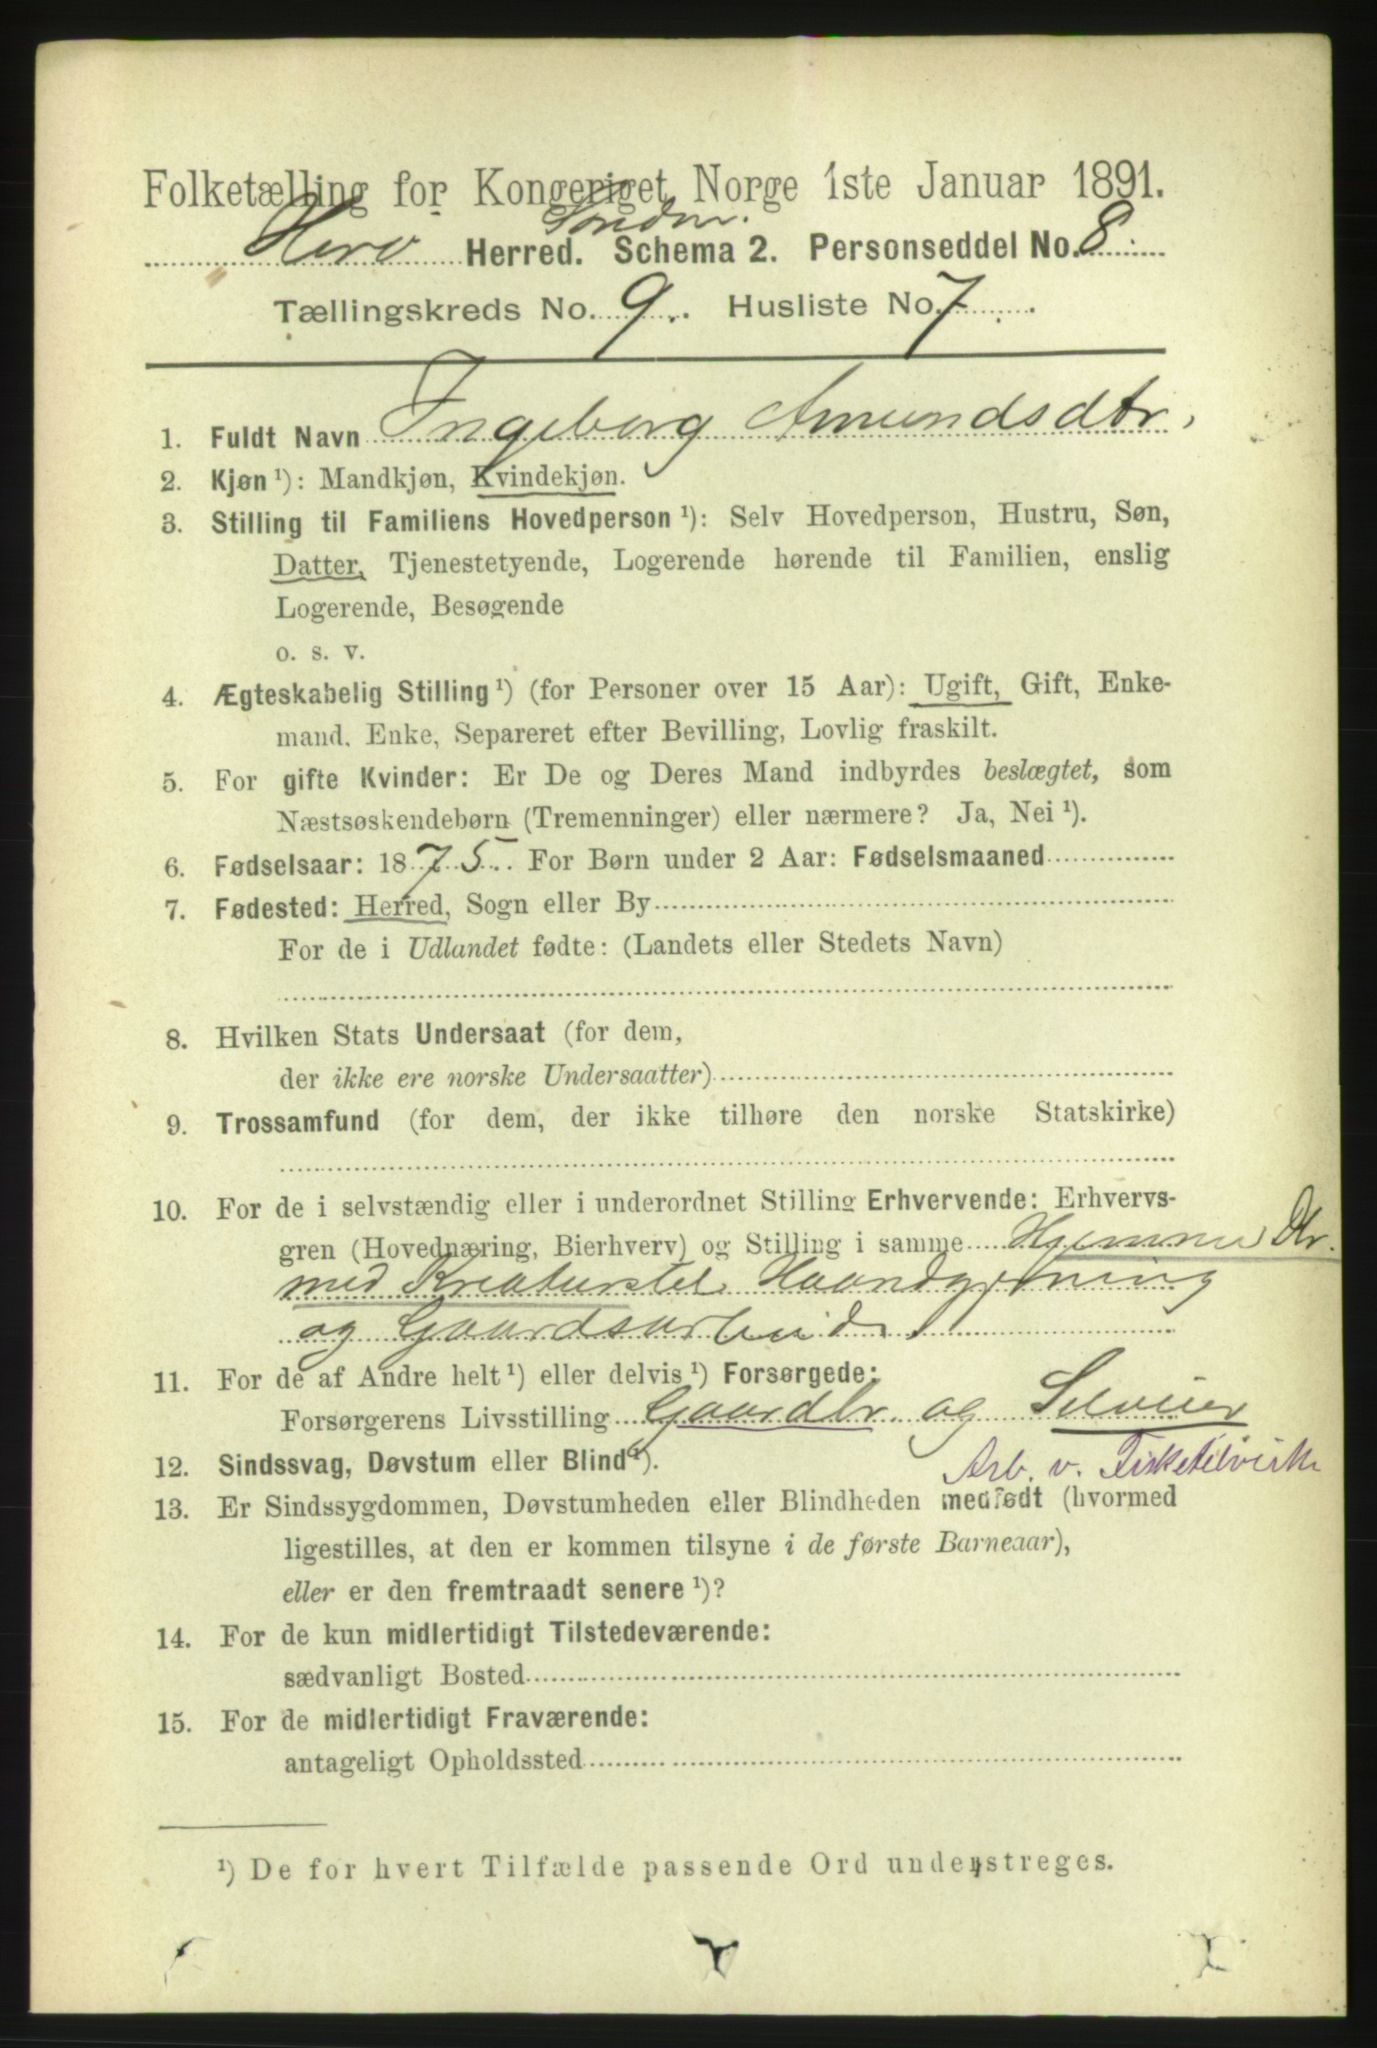 Folketælling for Kongeriget Norge 1ste Januar 1891.
Søndre
Herø Herred. Schema 2. Personseddel No. 8
Tællingskreds No. 9. Husliste No. 7
1. Fuldt Navn Ingeborg Amundsdtr,
2. Kjøn¹): Mandkjøn, Kvindekjøn.
3. Stilling til Familiens Hovedperson¹): Selv Hovedperson, Hustru, Søn,
Datter, Tjenestetyende, Logerende hørende til Familien, enslig
Logerende, Besøgende
o. s. v.
4. Ægteskabelig Stilling¹) (for Personer over 15 Aar): Ugift, Gift, Enke-
mand, Enke, Separeret efter Bevilling, Lovlig fraskilt.
5. For gifte Kvinder: Er De og Deres Mand indbyrdes beslægtet, som
Næstsøskendebørn (Tremenninger) eller nærmere? Ja, Nei¹).
6. Fødselsaar: 1875. For Børn under 2 Aar: Fødselsmaaned
7. Fødested: Herred, Sogn eller By
For de i Udlandet fødte: (Landets eller Stedets Navn)
8. Hvilken Stats Undersaat (for dem,
der ikke ere norske Undersaatter)
9. Trossamfund (for dem, der ikke tilhøre den norske Statskirke)
10. For de i selvstændig eller i underordnet Stilling Erhvervende: Erhvervs-
gren (Hovednæring, Bierhverv) og Stilling i samme Hjemmev. Dtr.
med Kreaturstel Haandgjerning
og Gaardsarbeide
11. For de af Andre helt¹) eller delvis¹) Forsørgede:
Forsørgerens Livsstilling Gaardbr. og Selveier
Arb. v. Fisketilvirk
12. Sindssvag, Døvstum eller Blind¹).
13. Er Sindssygdommen, Døvstumheden eller Blindheden medfødt (hvormed
ligestilles, at den er kommen tilsyne i de første Barneaar),
eller er den fremtraadt senere¹)?
14. For de kun midlertidigt Tilstedeværende:
sædvanligt Bosted
15. For de midlertidigt Fraværende:
antageligt Opholdssted
¹) De for hvert Tilfælde passende Ord understreges.